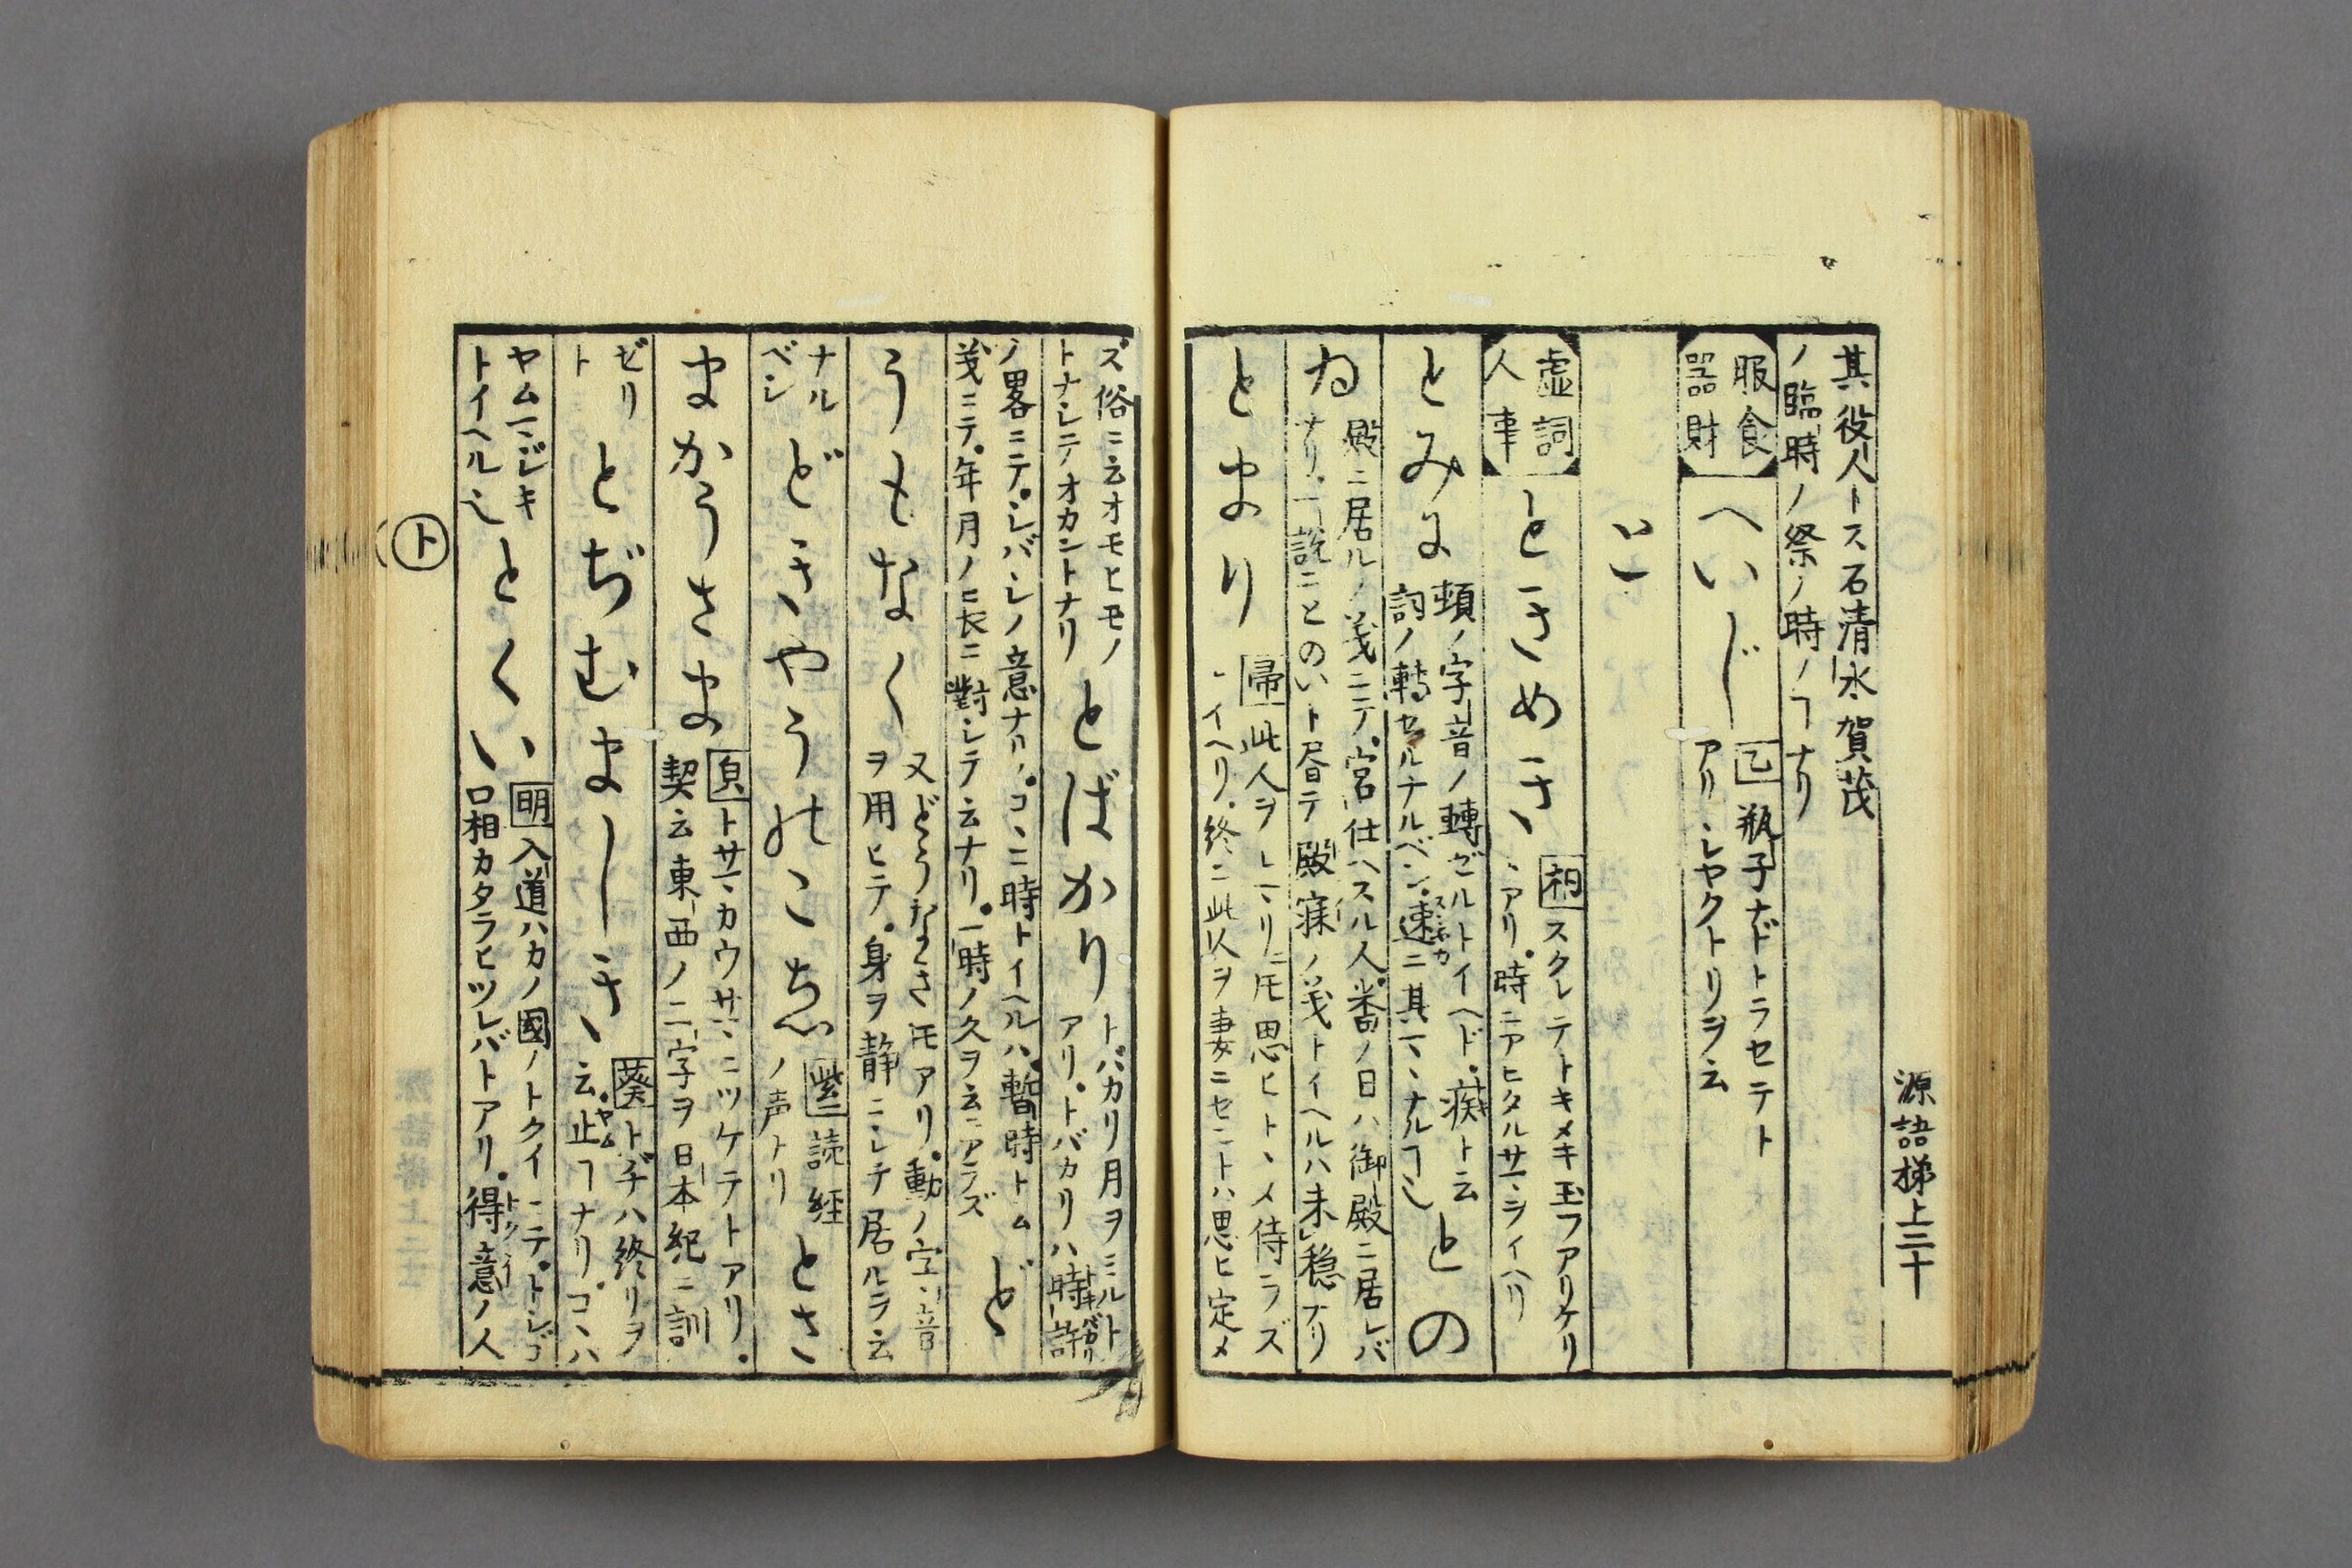 其役人トス石清水賀茂
ノ臨時ノ祭ノ時ノヿナリ
服食
器財
へいじ
乙 瓶子ナドトラセテト
アリ、シヤクトリヲ云
と
虚詞
人事
ときめき
桐 スクレテトキメキ玉フアリケリ
、アリ。時ニアヒタルサマヲイヘリ
とみに
頓ノ字音ノ轉ゼルトイヘド。癡ト云
詞ノ轉セルナルベシ。速ニ其マヽナルヿ也
スミヤカ
との
ゐ
殿ニ居ルノ義ニテ。宮仕ヘスル人。番ノ日ハ御殿ニ居レバ
ナリ。一説ニとのいト昼テ殿寐ノ義トイヘルハ未穏ナリ
とまり
帚 此人ヲトマリニ𪜈思ヒトヽメ侍ラズ
トイヘリ。終ニ此人ヲ妻ニセントハ思ヒ定メ
源語梯上三十
ズ俗ニ云オモヒモノ
トナシテオカントナリ
とばかり
トバカリ月ヲミルト
アリ。トバカリハ時許
ノ畧ニテ。シバシノ意ナリ。コヽニ時トイヘルハ。暫時トム
義ニテ。年月ノ長ニ對シテ云ナリ。一時ノ久ヲ云ニアラズ
ど
うもなく
又どうなきさ𪜈アリ。動ノ字音
ヲ用ヒテ。身ヲ静ニシテ居ルヲ云
ナル
ベシ
どきやうのこゑ
紫 読経
ノ声トリ
とさ
まかうさま
トサマカウサマニツケテトアリ。
契云東西ノ二字ヲ日本紀ニ訓
ゼリ
ト
とぢむまじき
葵 トヂハ終リヲ
云。止ヿナリ。コヽハ
ヤム
ヤムマジキ
トイヘル也
とくい
明 入道ハカノ國ノトクイニテ。トシゴ
ロ相カタラヒツレバトアリ。得意ノ人
トクイ
ト